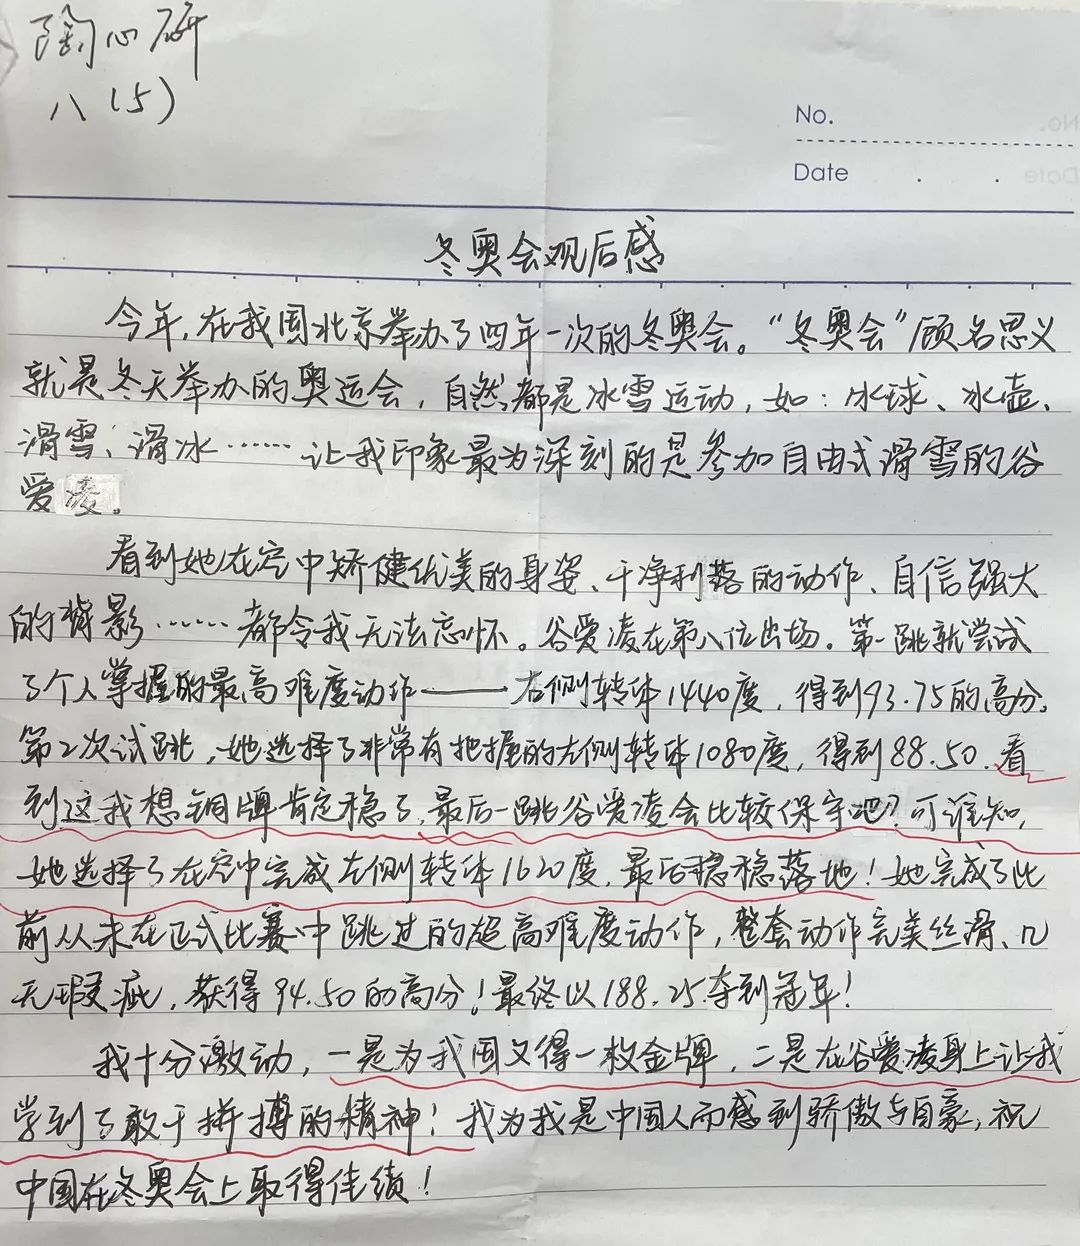 陶心研
八(5)
No.
Date
冬奥会观后感
今年,在我国北京举办了四年一次的冬奥会。“冬奥会”顾名思义
就是冬天举办的奥运会,自然都是冰雪运动,如:冰球、冰壶、
滑雪、滑冰……让我印象最为深刻的是参加自由式滑雪的谷
爱凌。
看到她在空中矫健优美的身姿、干净利落的动作、自信强大
的背影……都令我无法忘怀。谷爱凌在第八位出场。第一跳就尝试
了个人掌握的最高难度动作——右侧转体1440度,得到93.75的高分。
第2次试跳,她选择了非常有把握的左侧转体1080度,得到88.50.看
到这我想铜牌肯定稳了,最后一跳谷爱凌会比较保守吧?可谁知,
她选择了在空中完成左侧转体1620度,最后稳稳落地!她完成了此
前从未在正式比赛中跳过的超高难度动作,整套动作完美丝滑、几
无瑕疵,获得94.50的高分!最终以188.25夺到冠军!
我十分激动,一是为我国又得一枚金牌,二是在谷爱凌身上让我
学到了敢于拼搏的精神!我为我是中国人而感到骄傲与自豪,祝
中国在冬奥会上取得佳绩!